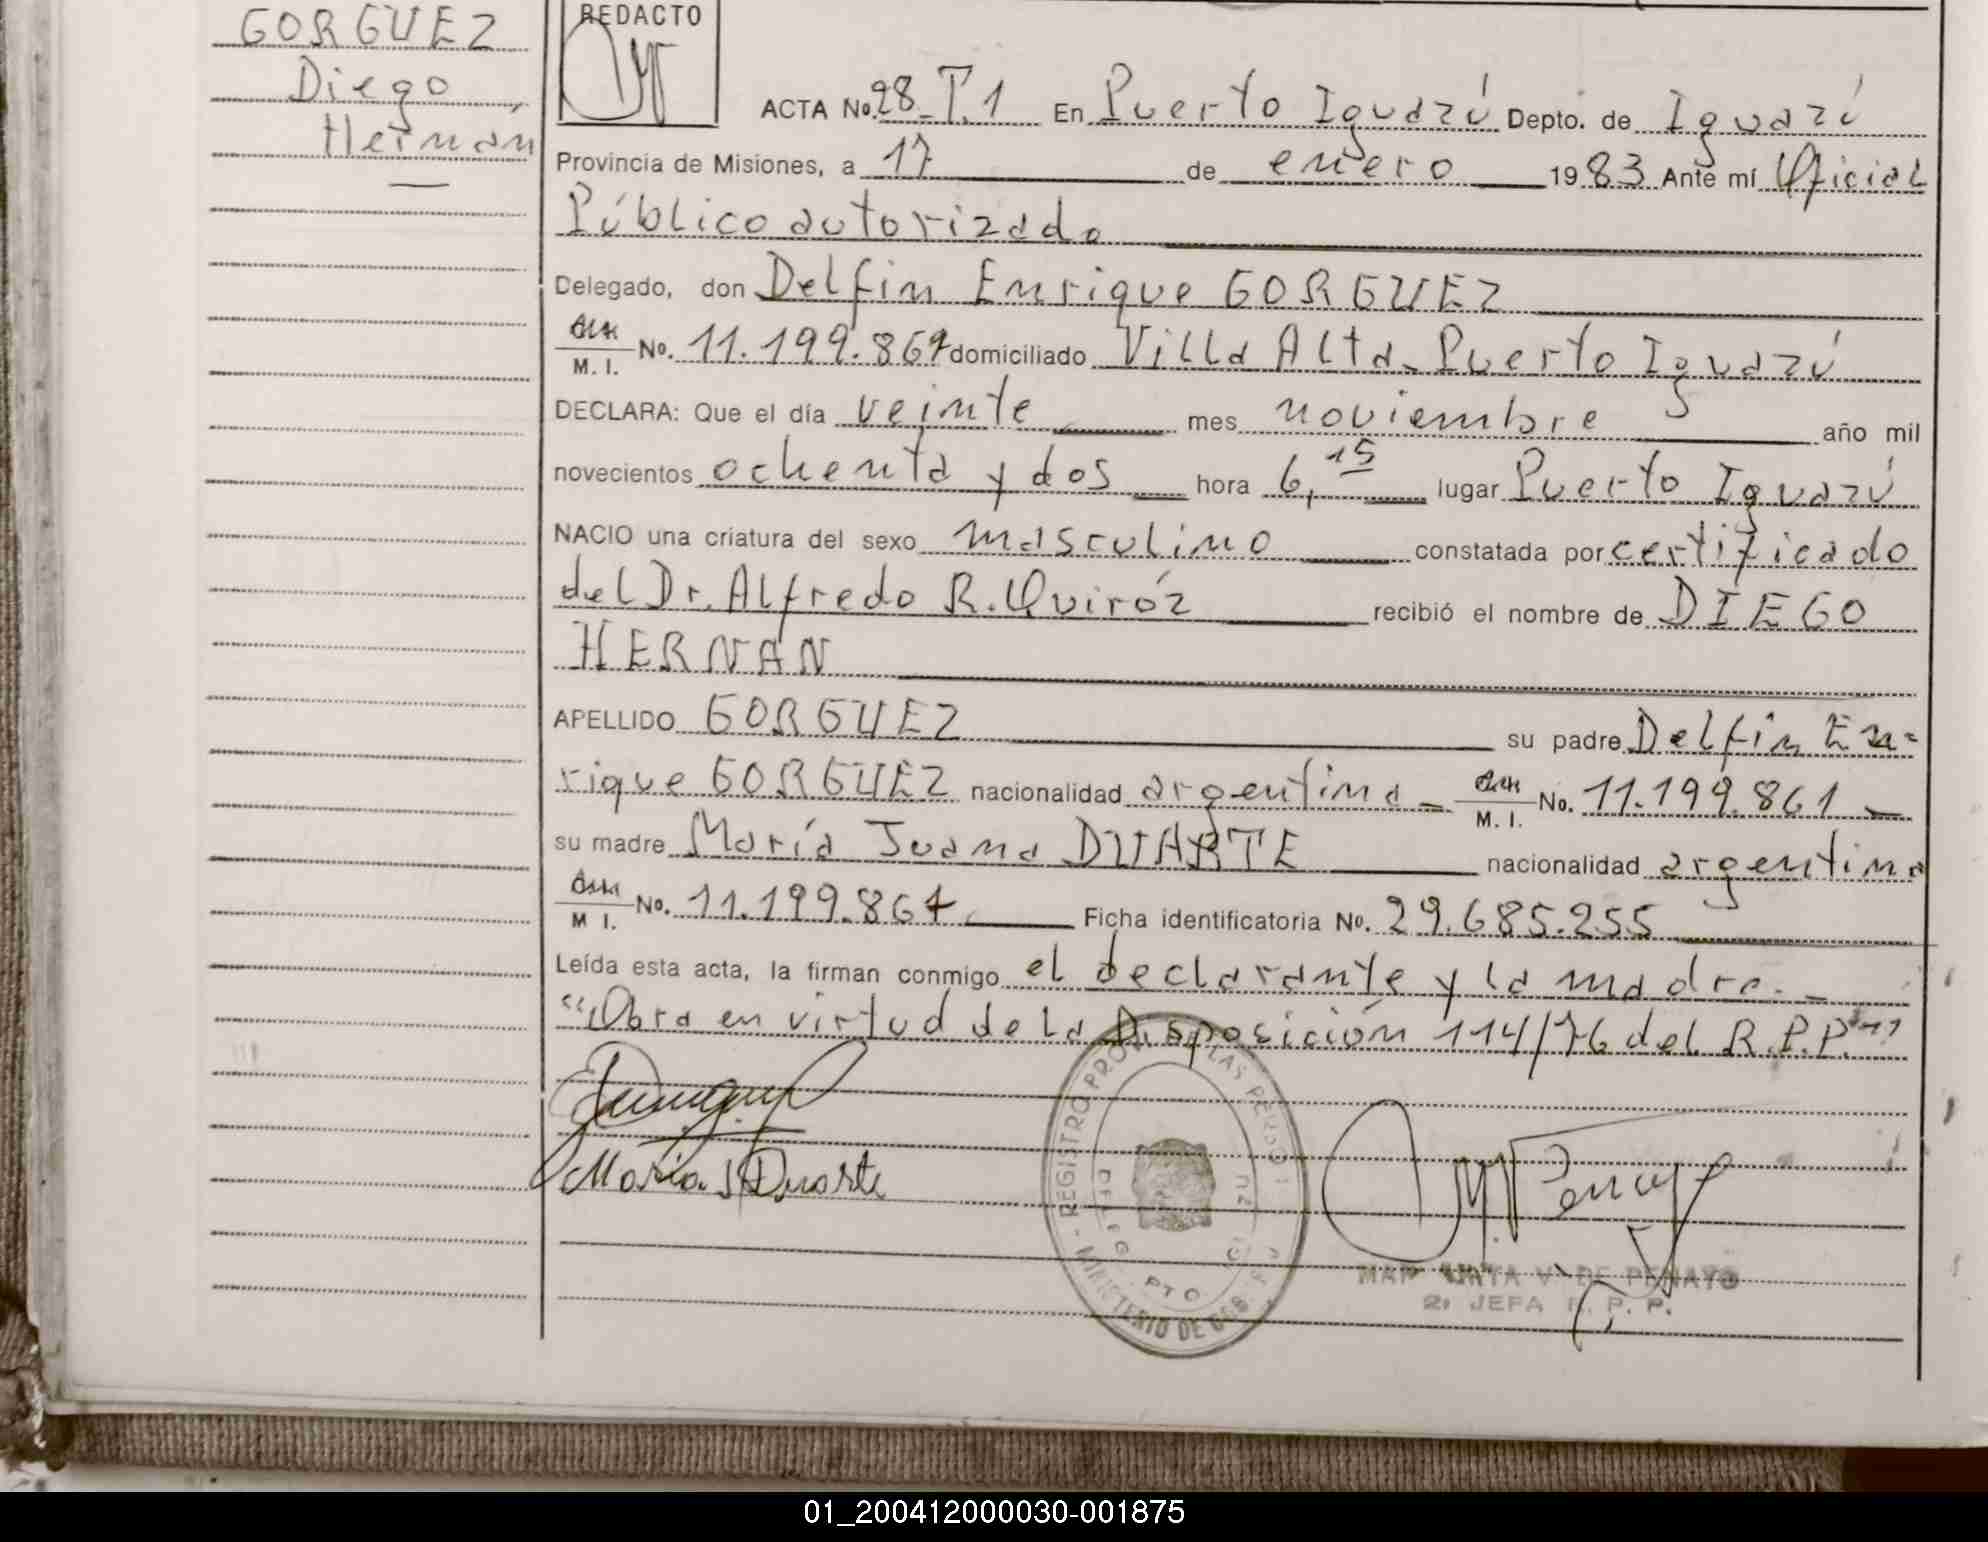 GORGUEZ
Diego
Hernán
REDACTO
ACTA No. 28 T.1 En Puerto Iguazú Depto. de Iguazú
Provincia de Misiones, a 17 de enero 1983 Ante mí Oficial
Público autorizado
Delegado, don Delfin Enrique GORGUEZ
M. I. No. 11.199.861 domiciliado Villa Alta - Puerto Iguazú
DECLARA: Que el día veinte mes noviembre año mil
novecientos ochenta y dos hora 6,15 lugar Puerto Iguazú
NACIO una criatura del sexo masculino constatada por certificado
del Dr. Alfredo R. Quiróz recibió el nombre de DIEGO
HERNAN
APELLIDO GORGUEZ su padre Delfín En=
rique GORGUEZ nacionalidad argentina - M. I. No. 11.199.861 -
su madre María Juana DUARTE nacionalidad argentina
M I. No. 11.199.867 Ficha identificatoria No. 29.685.255
Leída esta acta, la firman conmigo el declarante y la madre. -
"Obra en virtud de la Disposición 114/76 del R.P.P."
Maria J Duarte
REGISTRO PROV. DE LAS PERSO
MINISTERIO DE GOB.
Penayo
V. DE PENAYO
2a JEFA R. P. P.
01_200412000030-001875